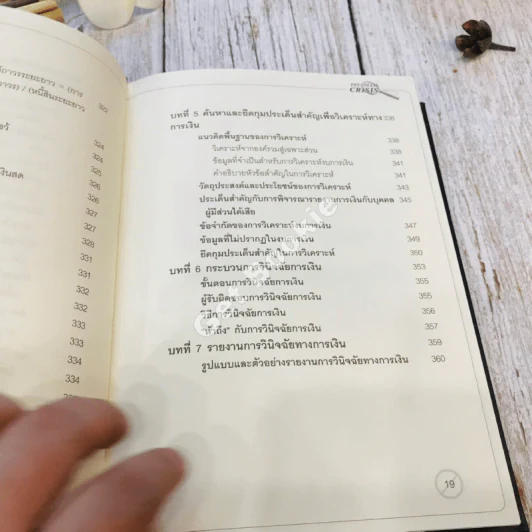 าวรระยะยาว = (การ
าวร) / (หนี้สินระยะยาว
324
324
งินสด
325
326
326
327
327
328
331
331
332
332
333
333
334
334
CRISIS
บทที่ 5 ค้นหาและยึดกุมประเด็นสำคัญเพื่อวิเคราะห์ทาง 338
การเงิน
แนวคิดพื้นฐานของการวิเคราะห์ 338
วิเคราะห์จากองค์รวมสู่เฉพาะส่วน 338
ข้อมูลที่จำเป็นสำหรับการวิเคราะห์งบการเงิน 341
คำอธิบายหัวข้อสำคัญในการวิเคราะห์ 341
วัตถุประสงค์และประโยชน์ของการวิเคราะห์ 343
ประเด็นสำคัญกับการพิจารณารายงานการเงินกับบุคคล 345
ผู้มีส่วนได้เสีย
ข้อจำกัดของการวิเคราะห์งบการเงิน 347
ข้อมูลที่ไม่ปรากฏในงบการเงิน 349
ยึดกุมประเด็นสำคัญในการวิเคราะห์ 350
บทที่ 6 กระบวนการวินิจฉัยการเงิน 353
ขั้นตอนการวินิจฉัยการเงิน 355
ผู้รับผิดชอบการวินิจฉัยการเงิน 355
วิธีการวินิจฉัยการเงิน 356
"เข้าถึง" กับการวินิจฉัยการเงิน 357
บทที่ 7 รายงานการวินิจฉัยทางการเงิน 359
รูปแบบและตัวอย่างรายงานการวินิจฉัยทางการเงิน 360
19